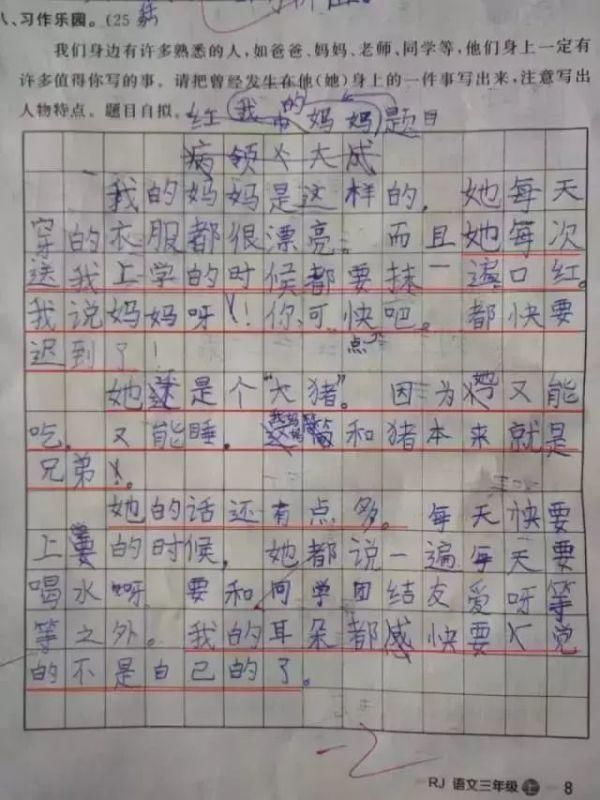 八、习作乐园。(25
我们身边有许多熟悉的人,如爸爸、妈妈、老师、同学等,他们身上一定有
许多值得你写的事。请把曾经发生在他(她)身上的一件事写出来,注意写出
人物特点。题目自拟。
我的妈妈 题目
我的妈妈是这样的,她每天
穿的衣服都很漂亮。而且她每次
送我上学的时候都要抹一遍口红。
我说妈妈呀!你可快点吧。都快要
迟到了!
她还是个“大猪”。因为她又能
吃,又能睡。我妈妈简和猪本来就是
兄弟。
她的话还有点多。每天快要
上学的时候,她都说一遍每天要
喝水呀 要和同学团结友爱呀等
等之外。我的耳朵都感快要 觉
的不是自己的了。
RJ 语文三年级 上 8